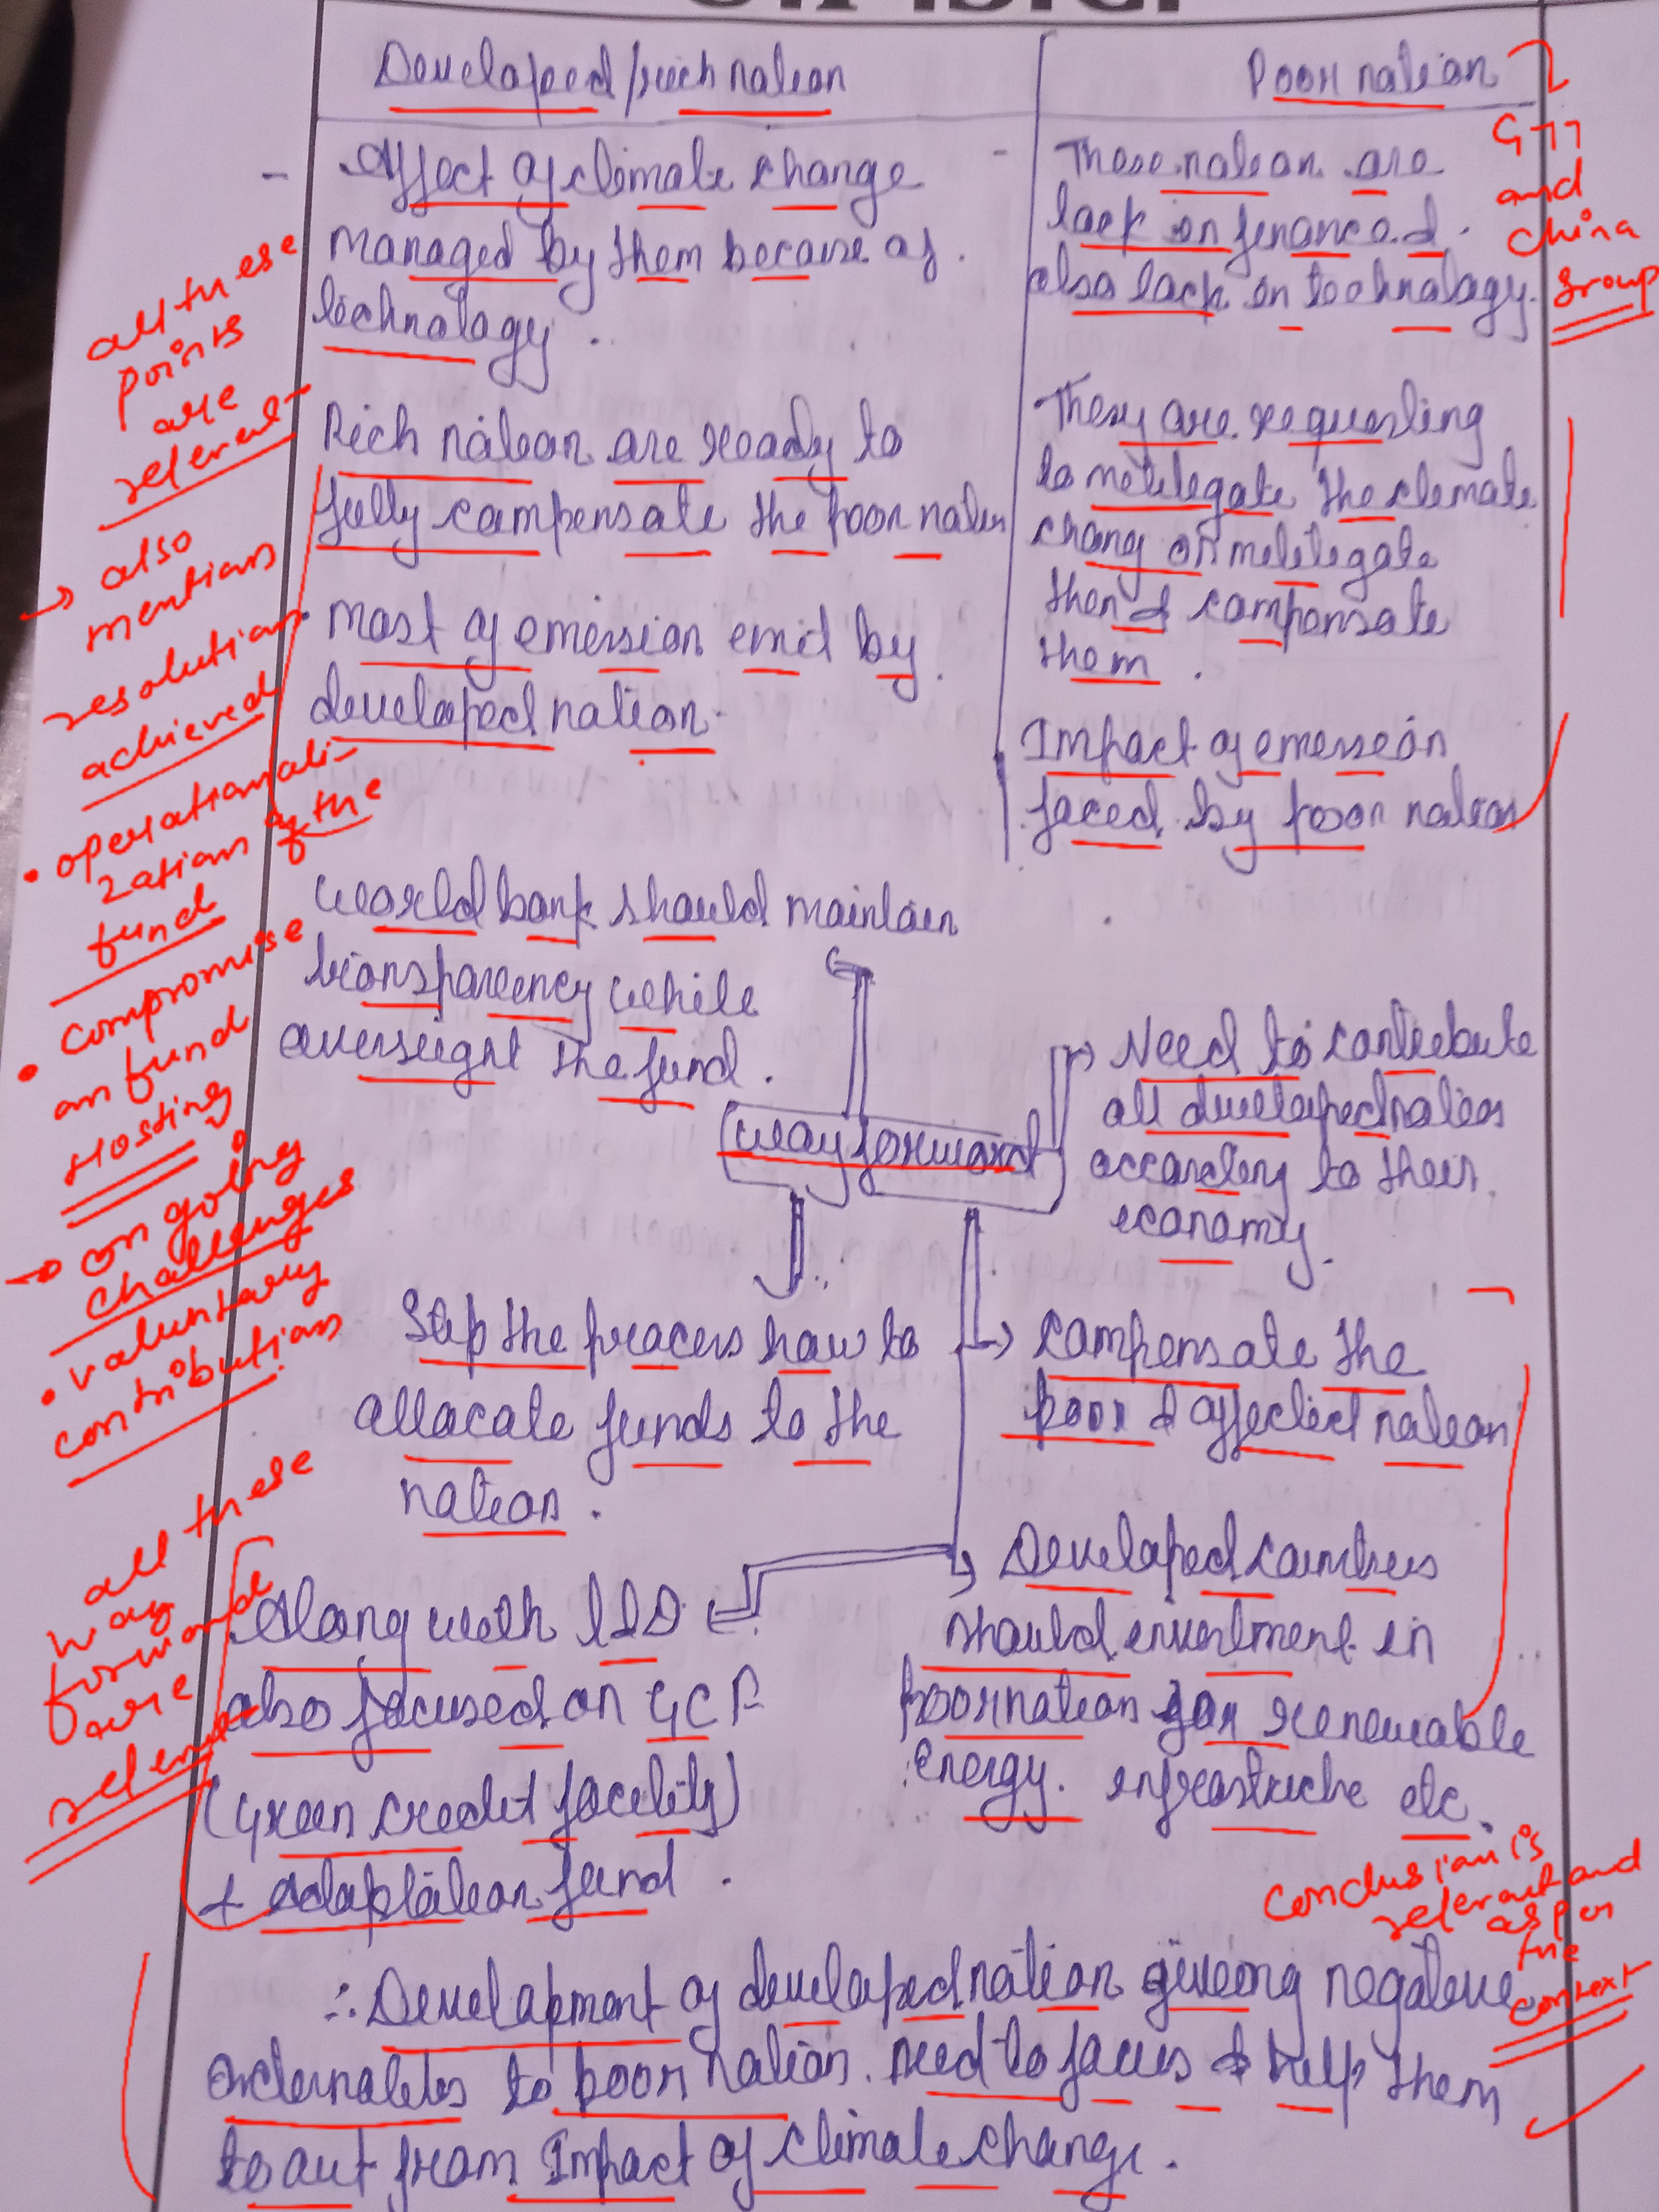 Developed/rich nation
Poor nation
G77
and
China
Group
- Effect of climate change
managed by them because of
technology.
- These nation are
lack in finance &
also lack in technology.
all these
points
are
relevant
Rich nation are ready to
fully compensate the poor nation
They are requesting
to mitilegate the climate
chang or mitilegate
then & compensate
them.
→ also
mention
resolution
achieved
• most of emission emit by
developed nation.
Impact of emission
faced by poor nation
• operationali-
zation of the
fund
• compromise
on fund
Hosting
World bank should maintain
transparency while
overseight the fund.
way forward
→ Need to contribute
all developed nation
according to their
economy.
→ on going
challenges
• voluntary
contribution
Step the process how to
allocate funds to the
nation.
→ compensate the
poor & affected nation
→ Developed countries
should investment in
poor nation for renewable
energy. infrastructure etc.
all these
way
forward
are
relevant
Along with L&D
also focused on GCF
(Green credit facility)
+ Adaptation fund.
Conclusion is
relevant and
as per
the
context
∴ Development of developed nation giveing negative
externalities to poor nation. need to focus & help them
to out from Impact of climate change.